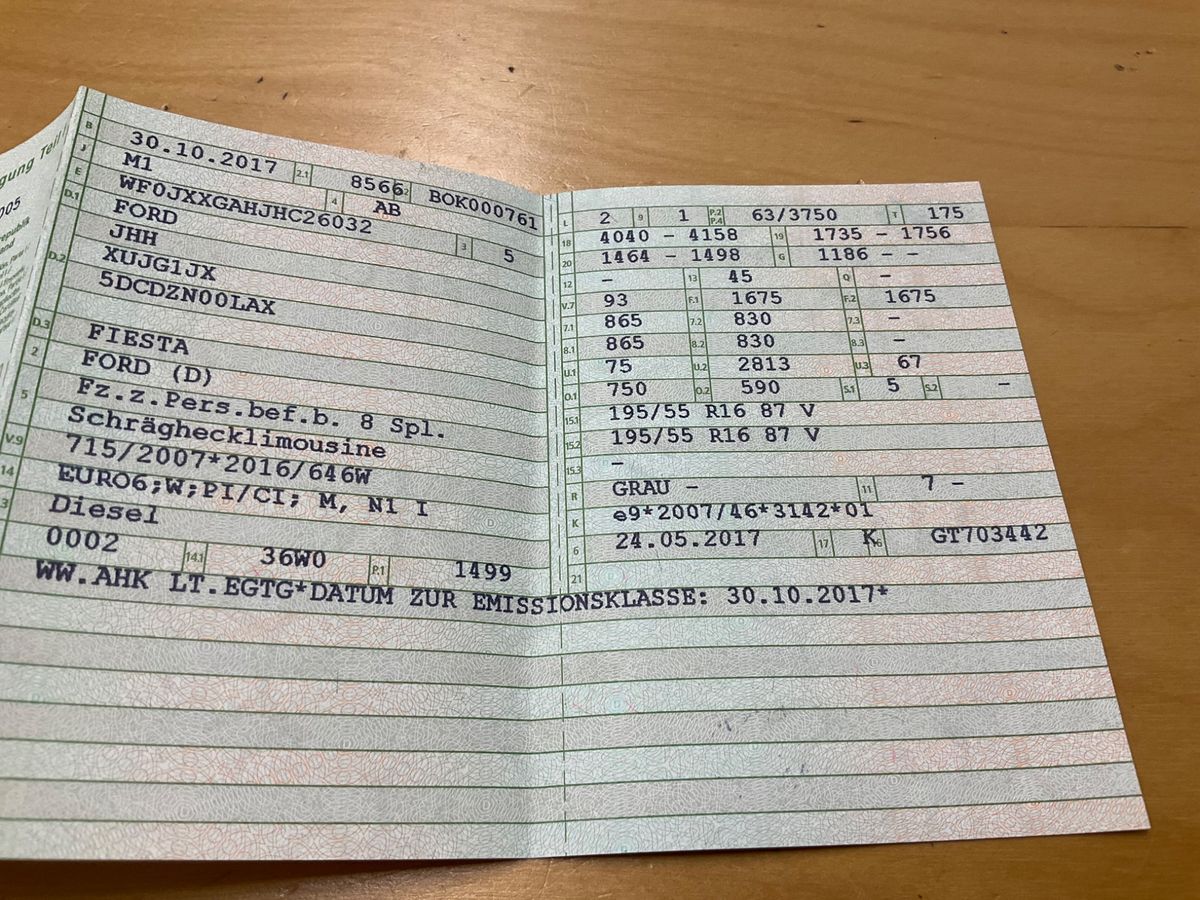 gung Teil I
005
republik
B 30.10.2017 2.1 8566 2.2 BOK000761
J M1 4 AB
E WF0JXXGAHJHC26032 3 5
D.1 FORD
JHH
D.2 XUJG1JX
5DCDZN00LAX
D.3 FIESTA
2 FORD (D)
5 Fz.z.Pers.bef.b. 8 Spl.
Schräghecklimousine
V.9 715/2007*2016/646W
14 EURO6;W;PI/CI; M, N1 I
3 Diesel
0002 14.1 36W0 P.1 1499
L 2 9 1 P.2 P.4 63/3750 T 175
18 4040 - 4158 19 1735 - 1756
20 1464 - 1498 G 1186 - -
12 - 13 45 Q -
V.7 93 F.1 1675 F.2 1675
7.1 865 7.2 830 7.3 -
8.1 865 8.2 830 8.3 -
U.1 75 U.2 2813 U.3 67
O.1 750 O.2 590 S.1 5 S.2 -
15.1 195/55 R16 87 V
15.2 195/55 R16 87 V
15.3 -
R GRAU - 11 7 -
K e9*2007/46*3142*01
6 24.05.2017 17 K 16 GT703442
21
WW.AHK LT.EGTG*DATUM ZUR EMISSIONSKLASSE: 30.10.2017*